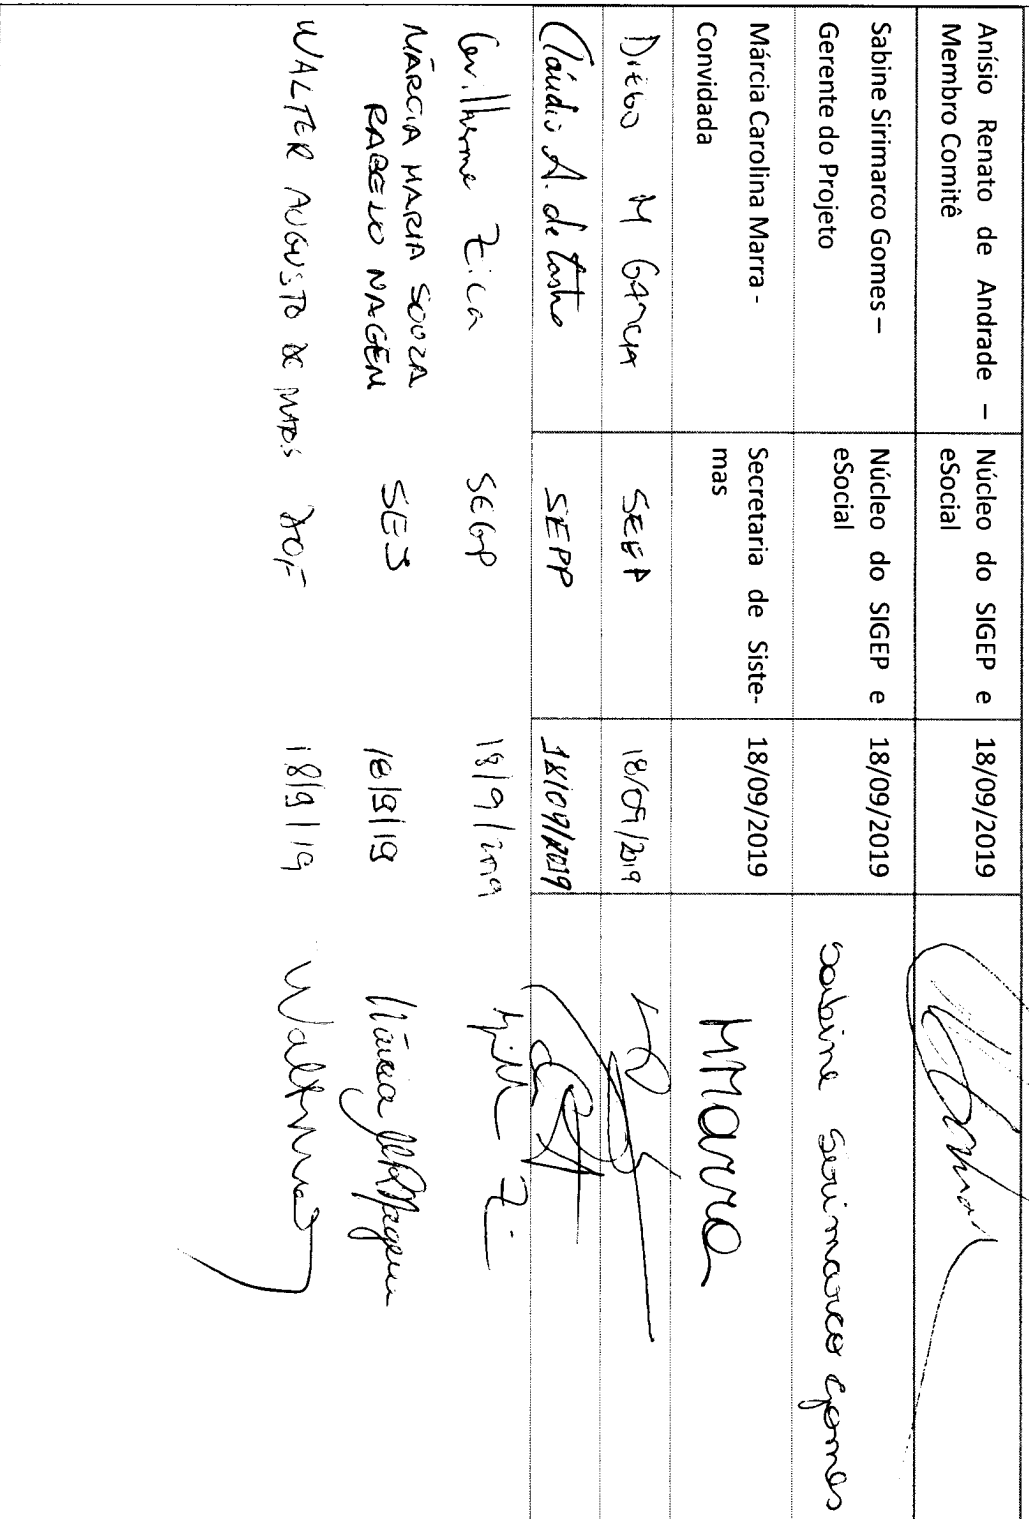 Anísio Renato de Andrade –
Membro Comitê
Núcleo do SIGEP e
eSocial
18/09/2019
Sabine Sirimarco Gomes –
Gerente do Projeto
Núcleo do SIGEP e
eSocial
18/09/2019
Sabine Sirimarco Gomes
Márcia Carolina Marra -
Convidada
Secretaria de Siste-
mas
18/09/2019
MMarra
Diego M Garcia
18/09/2019
Cláudio A. de Castro
SEPP
18/09/2019
Guilherme Zica
SEGP
18/9/2019
MÁRCIA MARIA SOUZA
RABELO NAGEM
SES
18/9/19
WALTER AUGUSTO DE
18/9/19